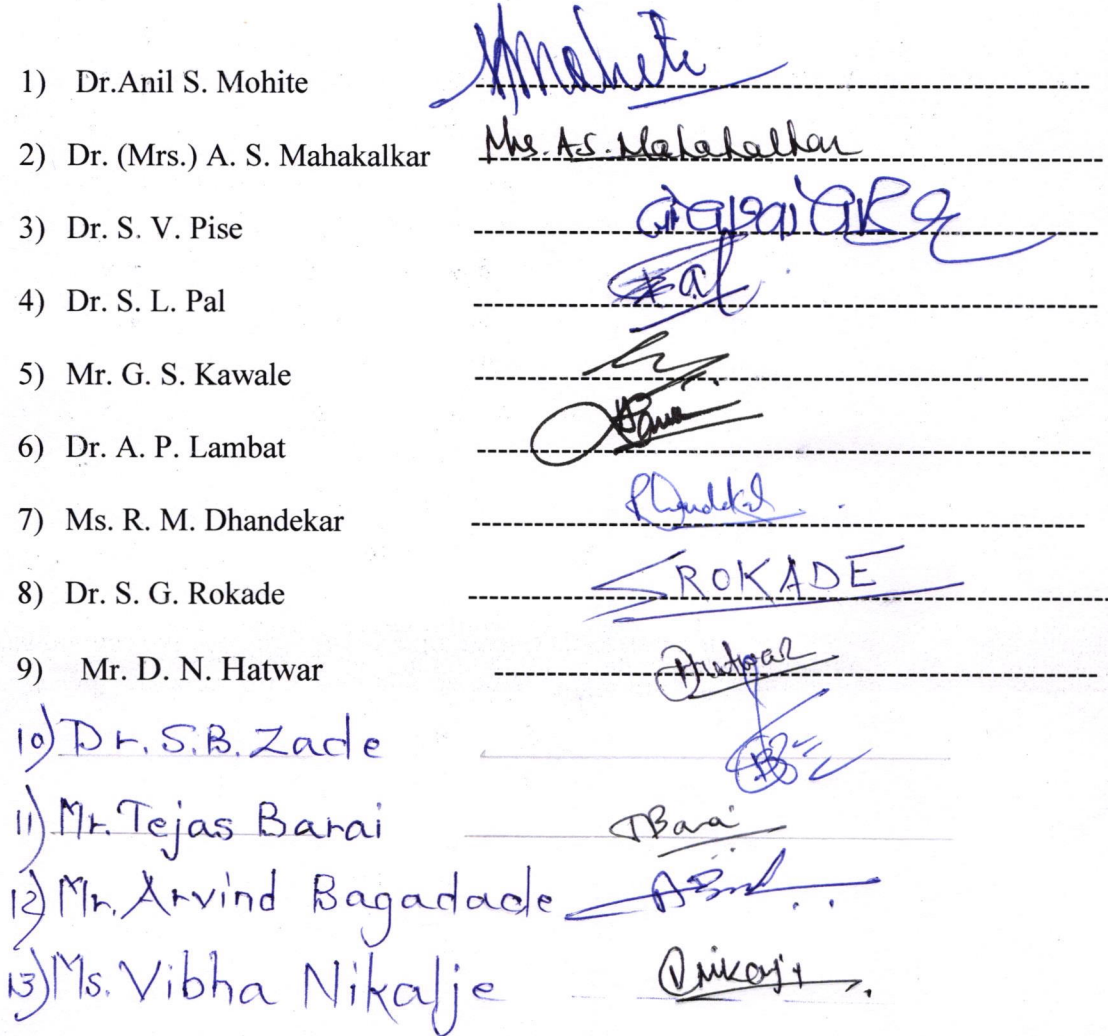 1) Dr.Anil S. Mohite Mohite
2) Dr. (Mrs.) A. S. Mahakalkar Mrs. A.S. Mahakalkar
3) Dr. S. V. Pise
4) Dr. S. L. Pal
5) Mr. G. S. Kawale
6) Dr. A. P. Lambat
7) Ms. R. M. Dhandekar
8) Dr. S. G. Rokade ROKADE
9) Mr. D. N. Hatwar
10) Dr. S.B. Zade
11) Mr. Tejas Barai
12) Mr. Arvind Bagadade
13) Ms. Vibha Nikalje